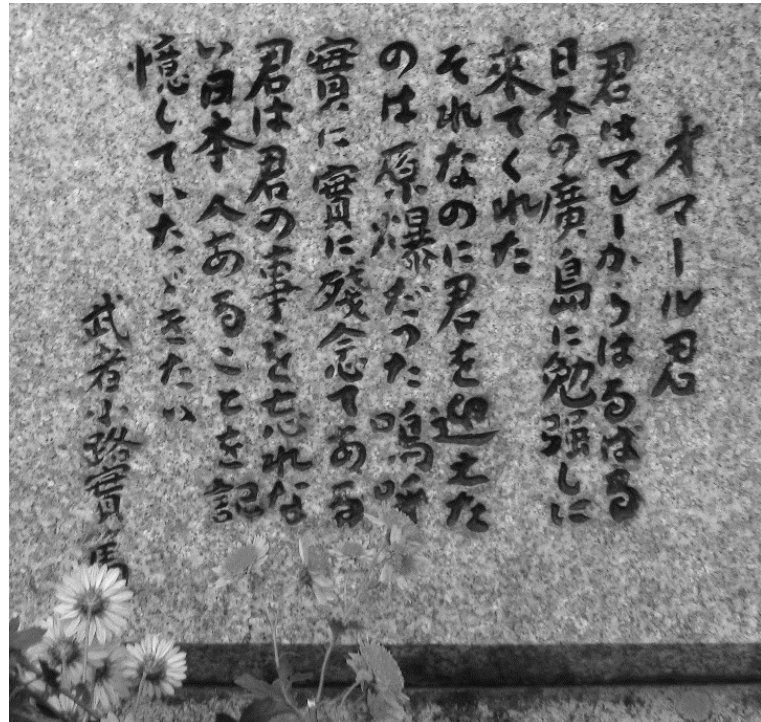 オマール君
君はマレーからはるばる
日本の廣島に勉強しに
来てくれた
それなのに君を迎えた
のは原爆だった嗚呼
實に實に殘念である
君は君の事を忘れな
い日本人あることを記
憶していたゞきたい
武者小路實篤